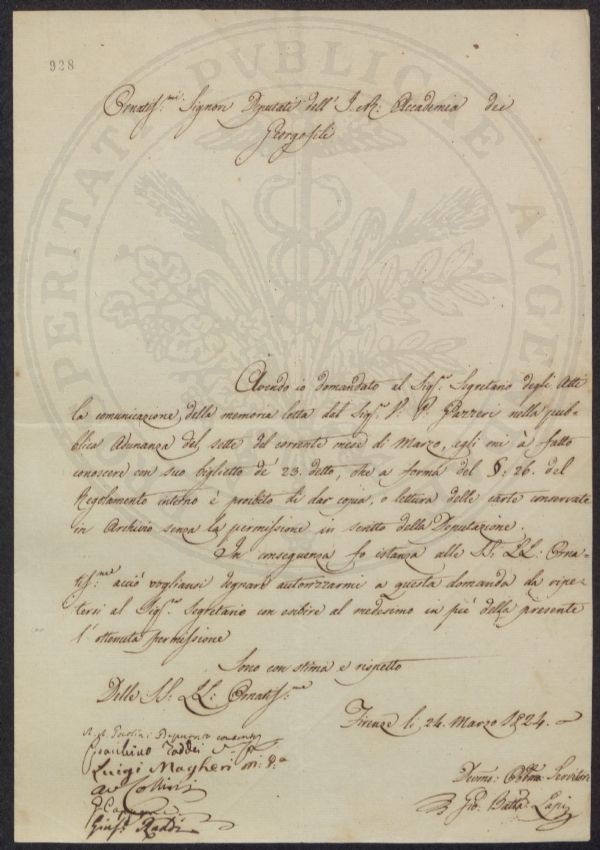 928
Ornatiss.mi Signori Deputati dell' I. R. Accademia dei
Georgofili
Avendo io domandato al Sig.r Segretario degli Atti
la comunicazione della memoria letta dal Sig.r P. Gazzeri nella pub-
blica Adunanza del sette del corrente mese di Marzo, egli mi à fatto
conoscere con suo biglietto de' 23. detto, che a forma del §. 26. del
Regolamento interno è proibito di dar copia, o lettura delle carte conservate
in Archivio senza la permissione in scritto della Deputazione.
In conseguenza fo istanza alle SS. LL: Orna-
tiss.me acciò vogliansi degnare autorizzarmi a questa domanda da ripe-
tersi al Sig.r Segretario con esibire al medesimo in piè della presente
l'ottenuta permissione
Sono con stima e rispetto
Delle SS. LL: Ornatiss.me
Firenze li 24. Marzo 1824.
Gioacchino Taddei
Luigi Magheri
Gius. Raddi
Devmo: Obbmo: Servitore
Gio. Batta: Lapi
PROSPERITATI PVBLICAE AVGENDAE